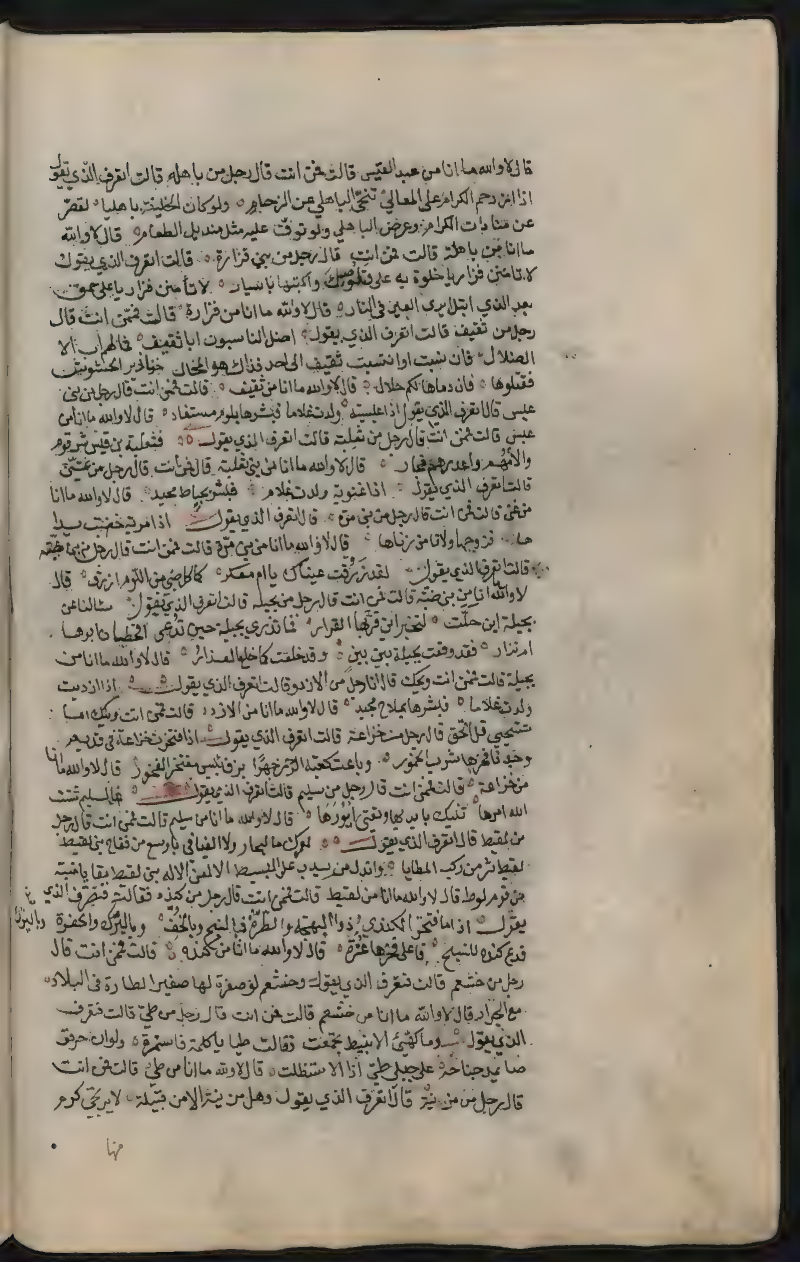 قال لا والله ما انا من عبد القيس قالت فمن انت قال رجل من باهله قالت اتعرف الذي يقول
اذا ازدحم الكرام على المعالي تنحى الباهلي عن الزحام ولو كان الخليفة باهليا لقصر
عن مناوات الكرام وعرض الباهلي ولو توقت عليه مثل منديل الطعام قال لا والله
ما انا من باهلة قالت فمن انت قال رجل من بني فزارة قالت اتعرف الذي يقول
لا تأمنن فزاريا خلوة به على قلوصك واكتبها باسيار لا تأمنن فزاريا على حمر
بعد الذي ابتل اير العير في النار قال لا والله ما انا من فزارة قالت فممن انت قال
رجل من ثقيف قالت اتعرف الذي يقول اضل الناسبون ابا ثقيف فما لهم اب الا
الضلال فان نسبت او انتسبت ثقيف الى احد فذاك هو المحال خنازير الحشوش
فقتلوها فان دماها لكم حلال قال لا والله ما انا من ثقيف قالت فمن انت قال رجل من بني
عبس قالت اتعرف الذي يقول اذا عبسية ولدت غلاما فبشرها بلوم مستفاد قال لا والله ما انا من
عبس قالت فمن انت قال رجل من ثعلبة قالت اتعرف الذي يقول فثعلبة بن قيس شر قوم
والأمهم واغدرهم بجار قال لا والله ما انا من بني ثعلبة قال فمن انت قال رجل من غني
قالت اتعرف الذي يقول اذا غنوية ولدت غلام فبشر بخياط مجيد قال لا والله ما انا
من غني قالت فمن انت قال رجل من بني مرة قال اتعرف الذي يقول اذا مرية خضبت يدا
ها فزوجها ولا تامن زناها قال لا والله ما انا من بني مرة قالت فمن انت قال رجل من بني ضبة
قالت اتعرف الذي يقول لقد زرقت عيناك يا ام معكبر كما كل ضبي من اللوم ازرق قال
لا والله انا من بني ضبة قالت فمن انت قال رجل من بجيله قالت اتعرف الذي يقول سالنا عن
بجيلة اين حلت لتخبر اين قر بها القرار فما تدري بجيلة حين تدعى اقحطان ابوها
ام نزار فقد وقعت بجيلة بين بين وقد خلعت كما خلع العذار قال لا والله ما انا من
بجيلة قالت فمن انت ويحك قال انا رجل من الازد قالت اتعرف الذي يقول اذا ازديت
ولدت غلاما فبشرها بملاح مجيد قال لا والله ما انا من الازد قالت فمن انت ويلك اما
تستحيي قل الحق قال رجل من خزاعة قالت اتعرف الذي يقول اذا افتخرت خزاعة في قديم
وجدنا فخرها شرب الخمور وباعت كعبة الرحمن جهرا بزق بئس مفتخر الفخور قال لا والله ما انا
من خزاعة قالت فمن انت قال رجل من سليم قالت اتعرف الذي يقول فما لسليم شتت
الله امرها تنيك بايديها وتعي ايورها قال لا والله ما انا من سليم قالت فمن انت قال رجل
من لقيط قال اتعرف الذي يقول لعمرك ما البحار ولا الفيافي باوسع من فقاح بني لقيط
لقيط شر من ركب المطايا وانذل من يدب على البسيط الا لعن الاله بني لقيط بقايا خبثة
من قوم لوط قال لا والله ما انا من لقيط قالت فمن انت قال رجل من كنده فقالت فتعرف الذي
يقول اذا ما افتخر الكندي ذوا البهجة والطرة فبا لنسج وبالخف وبالترك والحفرة
فدع كنده للنسج فاعلى فخرها غره قال لا والله ما انا من كنده قالت فمن انت قال
رجل من خثعم قالت فتعرف الذي يقول وخثعم لو صفرة لها صفيرا لطارة في البلاد
مع الجراد قال لا والله ما انا من خثعم قالت فمن انت قال رجل من طي قالت فتعرف
الذي يقول وما طي الا نبيط تجمعت فقالت طيا ياكلمة فاستمرة ولو ان حرقوصا
يمد جناحه على جبلي طي اذا لاستظلت قال لا والله ما انا من طي قالت فمن انت
قال رجل من مزينة قالت اتعرف الذي يقول وهل من ينة الا من قبيلة لا يرتجى كرم
منها